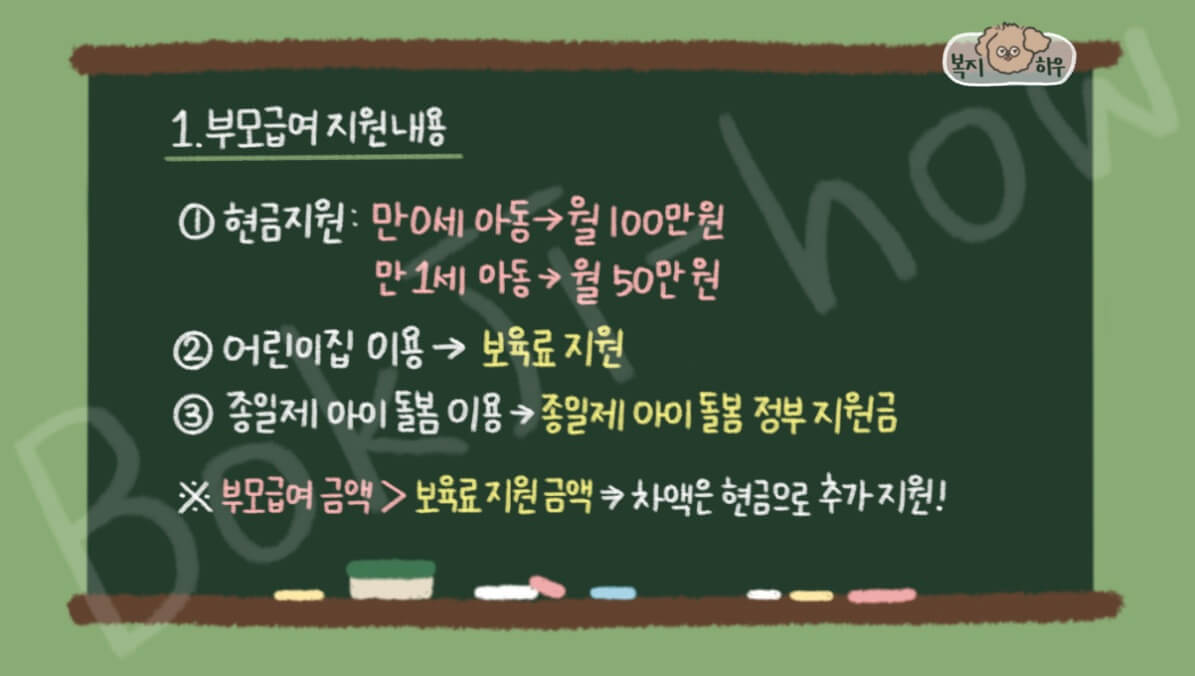 복지 하우
1. 부모급여 지원내용
① 현금지원: 만 0세 아동→월 100만원
만 1세 아동→월 50만원
② 어린이집 이용→ 보육료 지원
③ 종일제 아이 돌봄 이용→종일제 아이 돌봄 정부 지원금
※ 부모급여 금액 > 보육료 지원 금액→차액은 현금으로 추가 지원!
Bokji-how